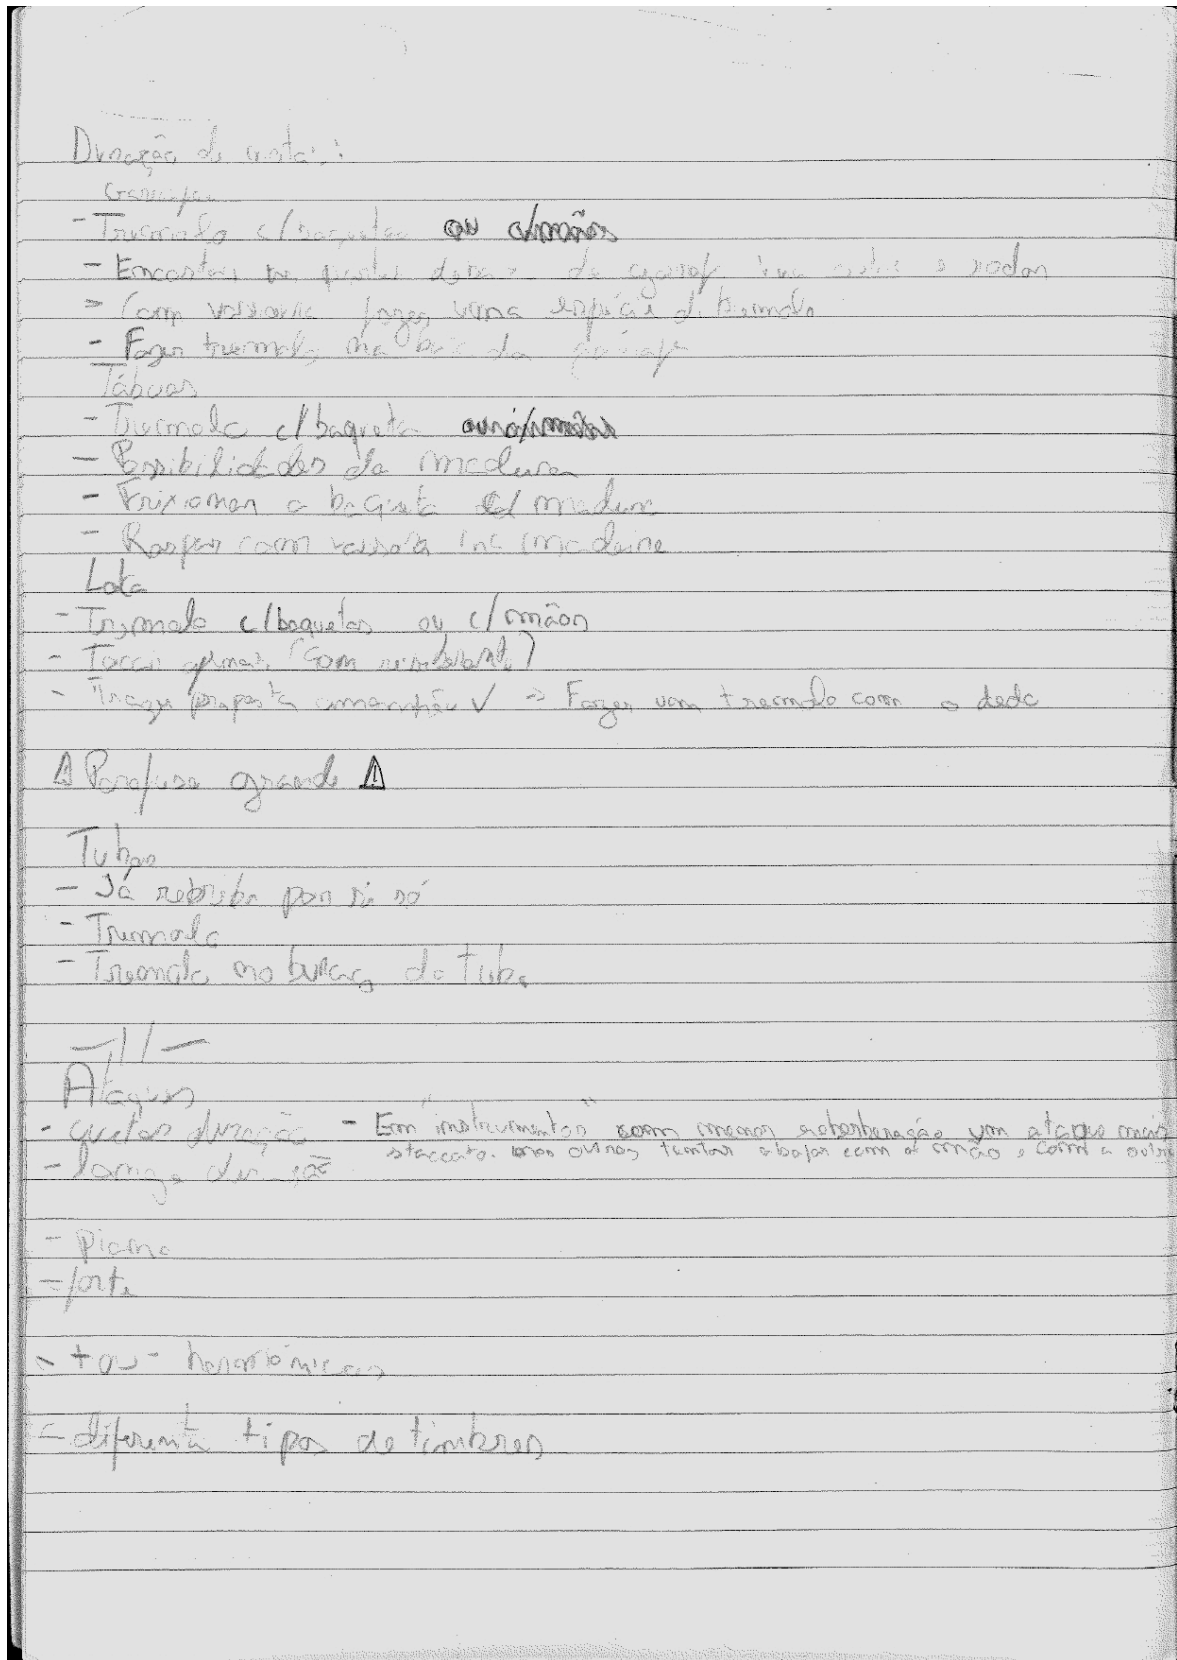 Duração de notas:
Garrafas
- Tremolo c/baquetas ou c/mãos
- Encostar na da garrafa e rodar
- Com vassoura fazer uma espécie de tremolo
- Fazer tremolo na da garrafa
Tábuas
- Tremolo c/baqueta ou c/mãos
- Possibilidades da madeira
- Frixionar a baqueta c/ madeira
- Raspar com vassoura na madeira
Lata
- Tremolo c/baquetas ou c/mãos
- Tocar apenas (som)
- proposta ✓ => Fazer um tremolo com o dedo
⚠ Parafuso grande ⚠
Tubos
- Já por si só
- Tremolo
- Tremolo no buraco do tubo
—//—
Ataques
- curtas duração - Em "instrumentos" com menor um ataque mais
staccato. outros tentar abafar com a mão, com a outra
- longa duração
- piano
- forte
- + ou - harmónicos
- diferentes tipos de timbres